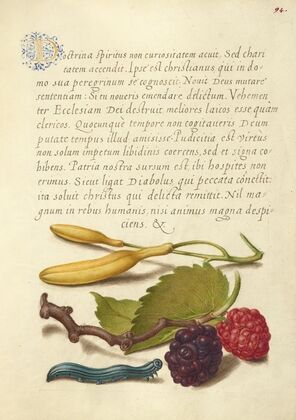 94.
Doctrina spiritus non curiositatem acuit, Sed chari
tatem accendit. Ipse est christianus qui in do-
mo sua peregrinum se cognoscit. Nouit Deus mutare
sententiam: Si tu noueris emendare delictum. Vehemen
ter Ecclesiam Dei destruit meliores laicos esse quam
clericos. Quocunque tempore non cogitaueris Deum
putate tempus illud amisisse. Pudicitia est virtus
non solum impetum libidinis coercens, sed et signa co-
hibens. Patria nostra sursum est, ibi hospites non
erimus. Sicut ligat Diabolus qui peccata conectit:
ita soluit christus qui delicta remittit. Nil ma-
gnum in rebus humanis, nisi animus magna despi-
ciens. &